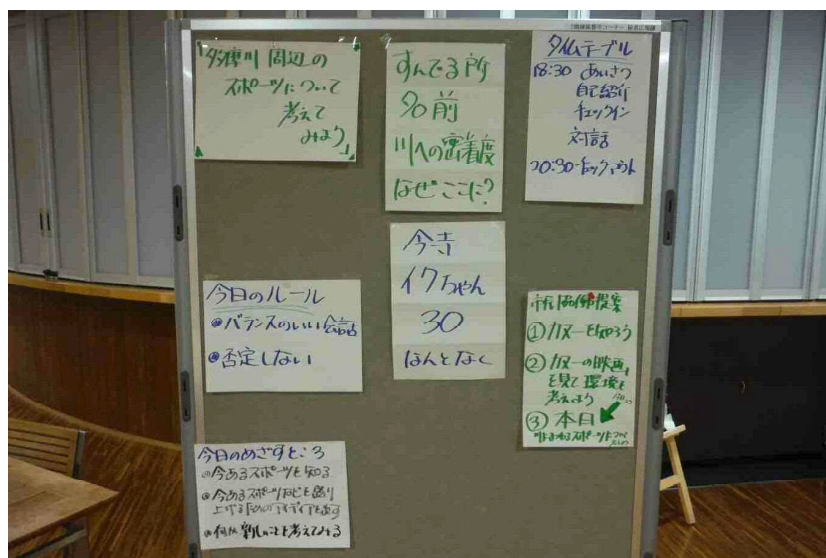 多摩川 周辺の
スポーツについて
考えて
みよう
すんでる所
名前
川への密着度
なぜここに?
タイムテーブル
18:30 あいさつ
自己紹介
チェックイン
対話
20:30 チェックアウト
今寺
イクちゃん
30
ほんとなく
今日のルール
バランスのいい会話
否定しない
提案
① カヌーを知ろう
② カヌーの映画
を見て環境を
考えよう
③ 本日
今日のめざすところ
今あるスポーツを知る
今あるスポーツなどを盛り
上げるためのアイディアを出す
新しいことを考えてみる